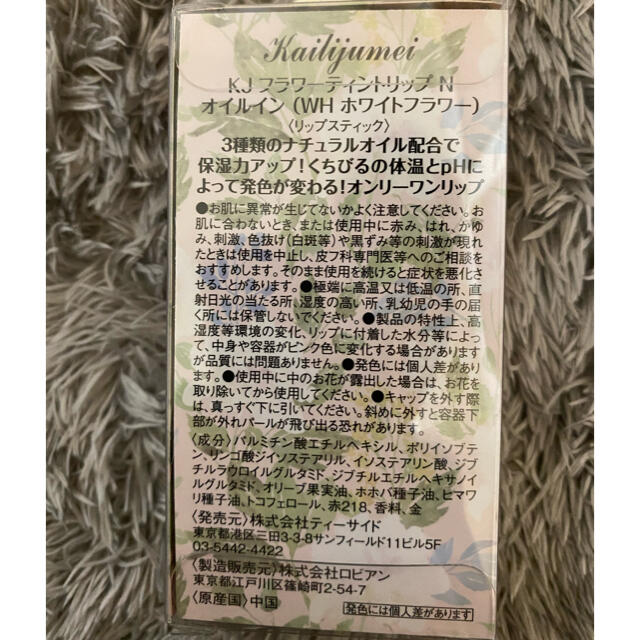 Kailijumei
KJ フラワーティントリップ N
オイルイン（WH ホワイトフラワー）
〈リップスティック〉
3種類のナチュラルオイル配合で
保湿力アップ！くちびるの体温とpHに
よって発色が変わる！オンリーワンリップ
●お肌に異常が生じてないかよく注意してください。お
肌に合わないとき、または使用中に赤み、はれ、かゆ
み、刺激、色抜け(白斑等)や黒ずみ等の刺激が現れ
たときは使用を中止し、皮フ科専門医等へのご相談を
おすすめします。そのまま使用を続けると症状を悪化さ
せることがあります。●極端に高温又は低温の所、直
射日光の当たる所、湿度の高い所、乳幼児の手の届
く所には保管しないでください。●製品の特性上、高
湿度等環境の変化、リップに付着した水分等によっ
て、中身や容器がピンク色に変化する場合があります
が品質には問題ありません。●発色には個人差があり
ます。●使用中に中のお花が露出した場合は、お花を
取り除いてから使用してください。●キャップを外す際
は、真っすぐ下に引いてください。斜めに外すと容器下
部が外れパールが飛び出る恐れがあります。
〈成分〉パルミチン酸エチルヘキシル、ポリイソブテ
ン、リンゴ酸ジイソステアリル、イソステアリン酸、ジブ
チルラウロイルグルタミド、ジブチルエチルヘキサノイ
ルグルタミド、オリーブ果実油、ホホバ種子油、ヒマワ
リ種子油、トコフェロール、赤218、香料、金
〈発売元〉株式会社ティーサイド
東京都港区三田3-3-8サンフィールド11ビル5F
03-5442-4422
〈製造販売元〉株式会社ロビアン
東京都江戸川区篠崎町2-54-7
〈原産国〉中国
発色には個人差があります